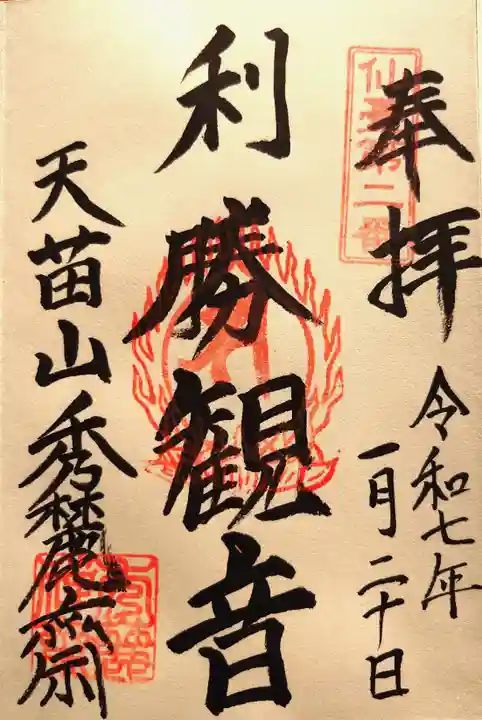 奉拝
令和七年
一月二十日
第二番
利勝観音
天苗山秀麓齋